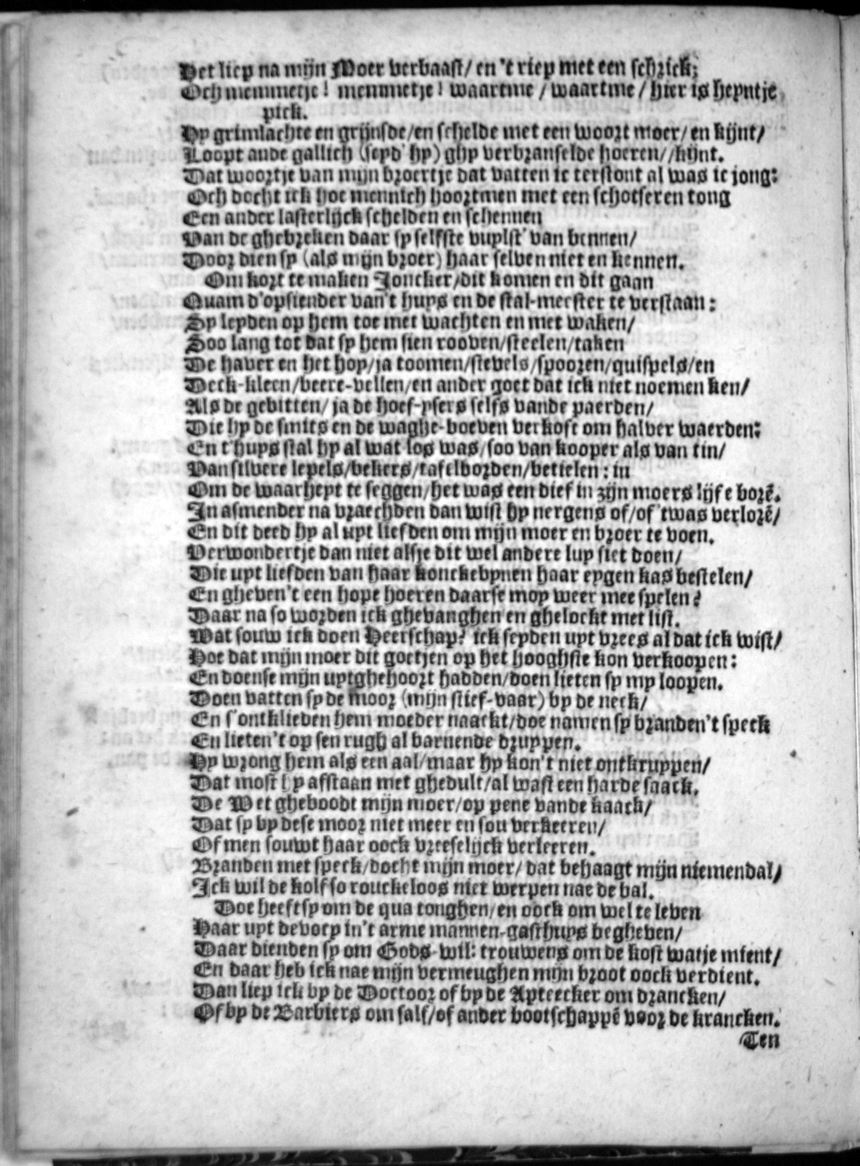 Het liep na mijn Moer verbaast/ en 't riep met een schrick;
Och memmetje! memmetje! waartme/ waartme/ hier is heyntje
pick.
Hy grimlachte en grijnsde/ en schelde met een woort moer/ en kijnt/
Loopt aude gallich (seyd' hy) ghy verbranselde hoeren//kijnt.
Dat woortje van mijn broertje dat vatten ic terstont al was ic jong:
Och docht ick hoe mennich hoortmen met een schotseren tong
Een ander lasterlijck schelden en schennen
Van de ghebreken daar sy selfste vuylst' van bennen/
Door dien sy (als mijn broer) haar selven niet en kennen.
Om kort te maken Joncker/ dit komen en dit gaan
Quam d'opsiender van't huys en de stal-meester te verstaan:
Sy leyden op hem toe met wachten en met waken/
Soo lang tot dat sy hem sien rooven/steelen/taken
De haver en het hop/ja toomen/stevels/spooren/quispels/en
Deck-kleen/beere-vellen/en ander goet dat ick niet noemen ken/
Als de gebitten/ ja de hoef-ysers selfs vande paerden/
Die hy de smits en de waghe-boeven verkoft om halver waerden:
En t'huys stal hy al wat los was/soo van kooper als van tin/
Van silvere lepels/bekers/tafelborden/betielen: in
Om de waarheyt te seggen/het was een dief in zijn moers lijf e borē.
In asmender na vraechden dan wist hy nergens of/of 'twas verlorē/
En dit deed hy al uyt liefden om mijn moer en broer te voen.
Verwondertje dan niet alsje dit wel andere luy siet doen/
Die uyt liefden van haar konckebynen haar eygen kas bestelen/
En gheven't een hope hoeren daarse moy weer mee spelen?
Daar na so worden ick ghevanghen en ghelockt met list.
Wat souw ick doen Heerschap? ick seyden uyt vrees al dat ick wist/
Hoe dat mijn moer dit goetjen op het hooghste kon verkoopen:
En doense mijn uytghehoort hadden/doen lieten sy my loopen.
Doen vatten sy de moor (mijn stief-vaar) by de neck/
En s'ontklieden hem moeder naackt/doe namen sy branden't speck
En lieten't op sen rugh al barnende druppen.
Hy wrong hem als een aal/maar hy kon't niet ontkruppen/
Dat most hy afstaan met ghedult/al wast een harde saack.
De Wet gheboodt mijn moer/op pene vande kaack/
Dat sy by dese moor niet meer en sou verkeeren/
Of men souwt haar oock vreeselijck verleeren.
Branden met speck/docht mijn moer/ dat behaagt mijn niemendal/
Ick wil de kolf so rouckeloos niet werpen nae de bal.
Doe heeft sy om de qua tonghen/en oock om wel te leven
Haar uyt devocy in't arme mannen-gasthuys begheven/
Daar dienden sy om Gods-wil: trouwens om de kost watje mient/
En daar heb ick nae mijn vermeughen mijn broot oock verdient.
Dan liep ick by de Doctoor of by de Apteecker om drancken/
Of by de Barbiers om salf/of ander bootschappē voor de krancken.
Ten